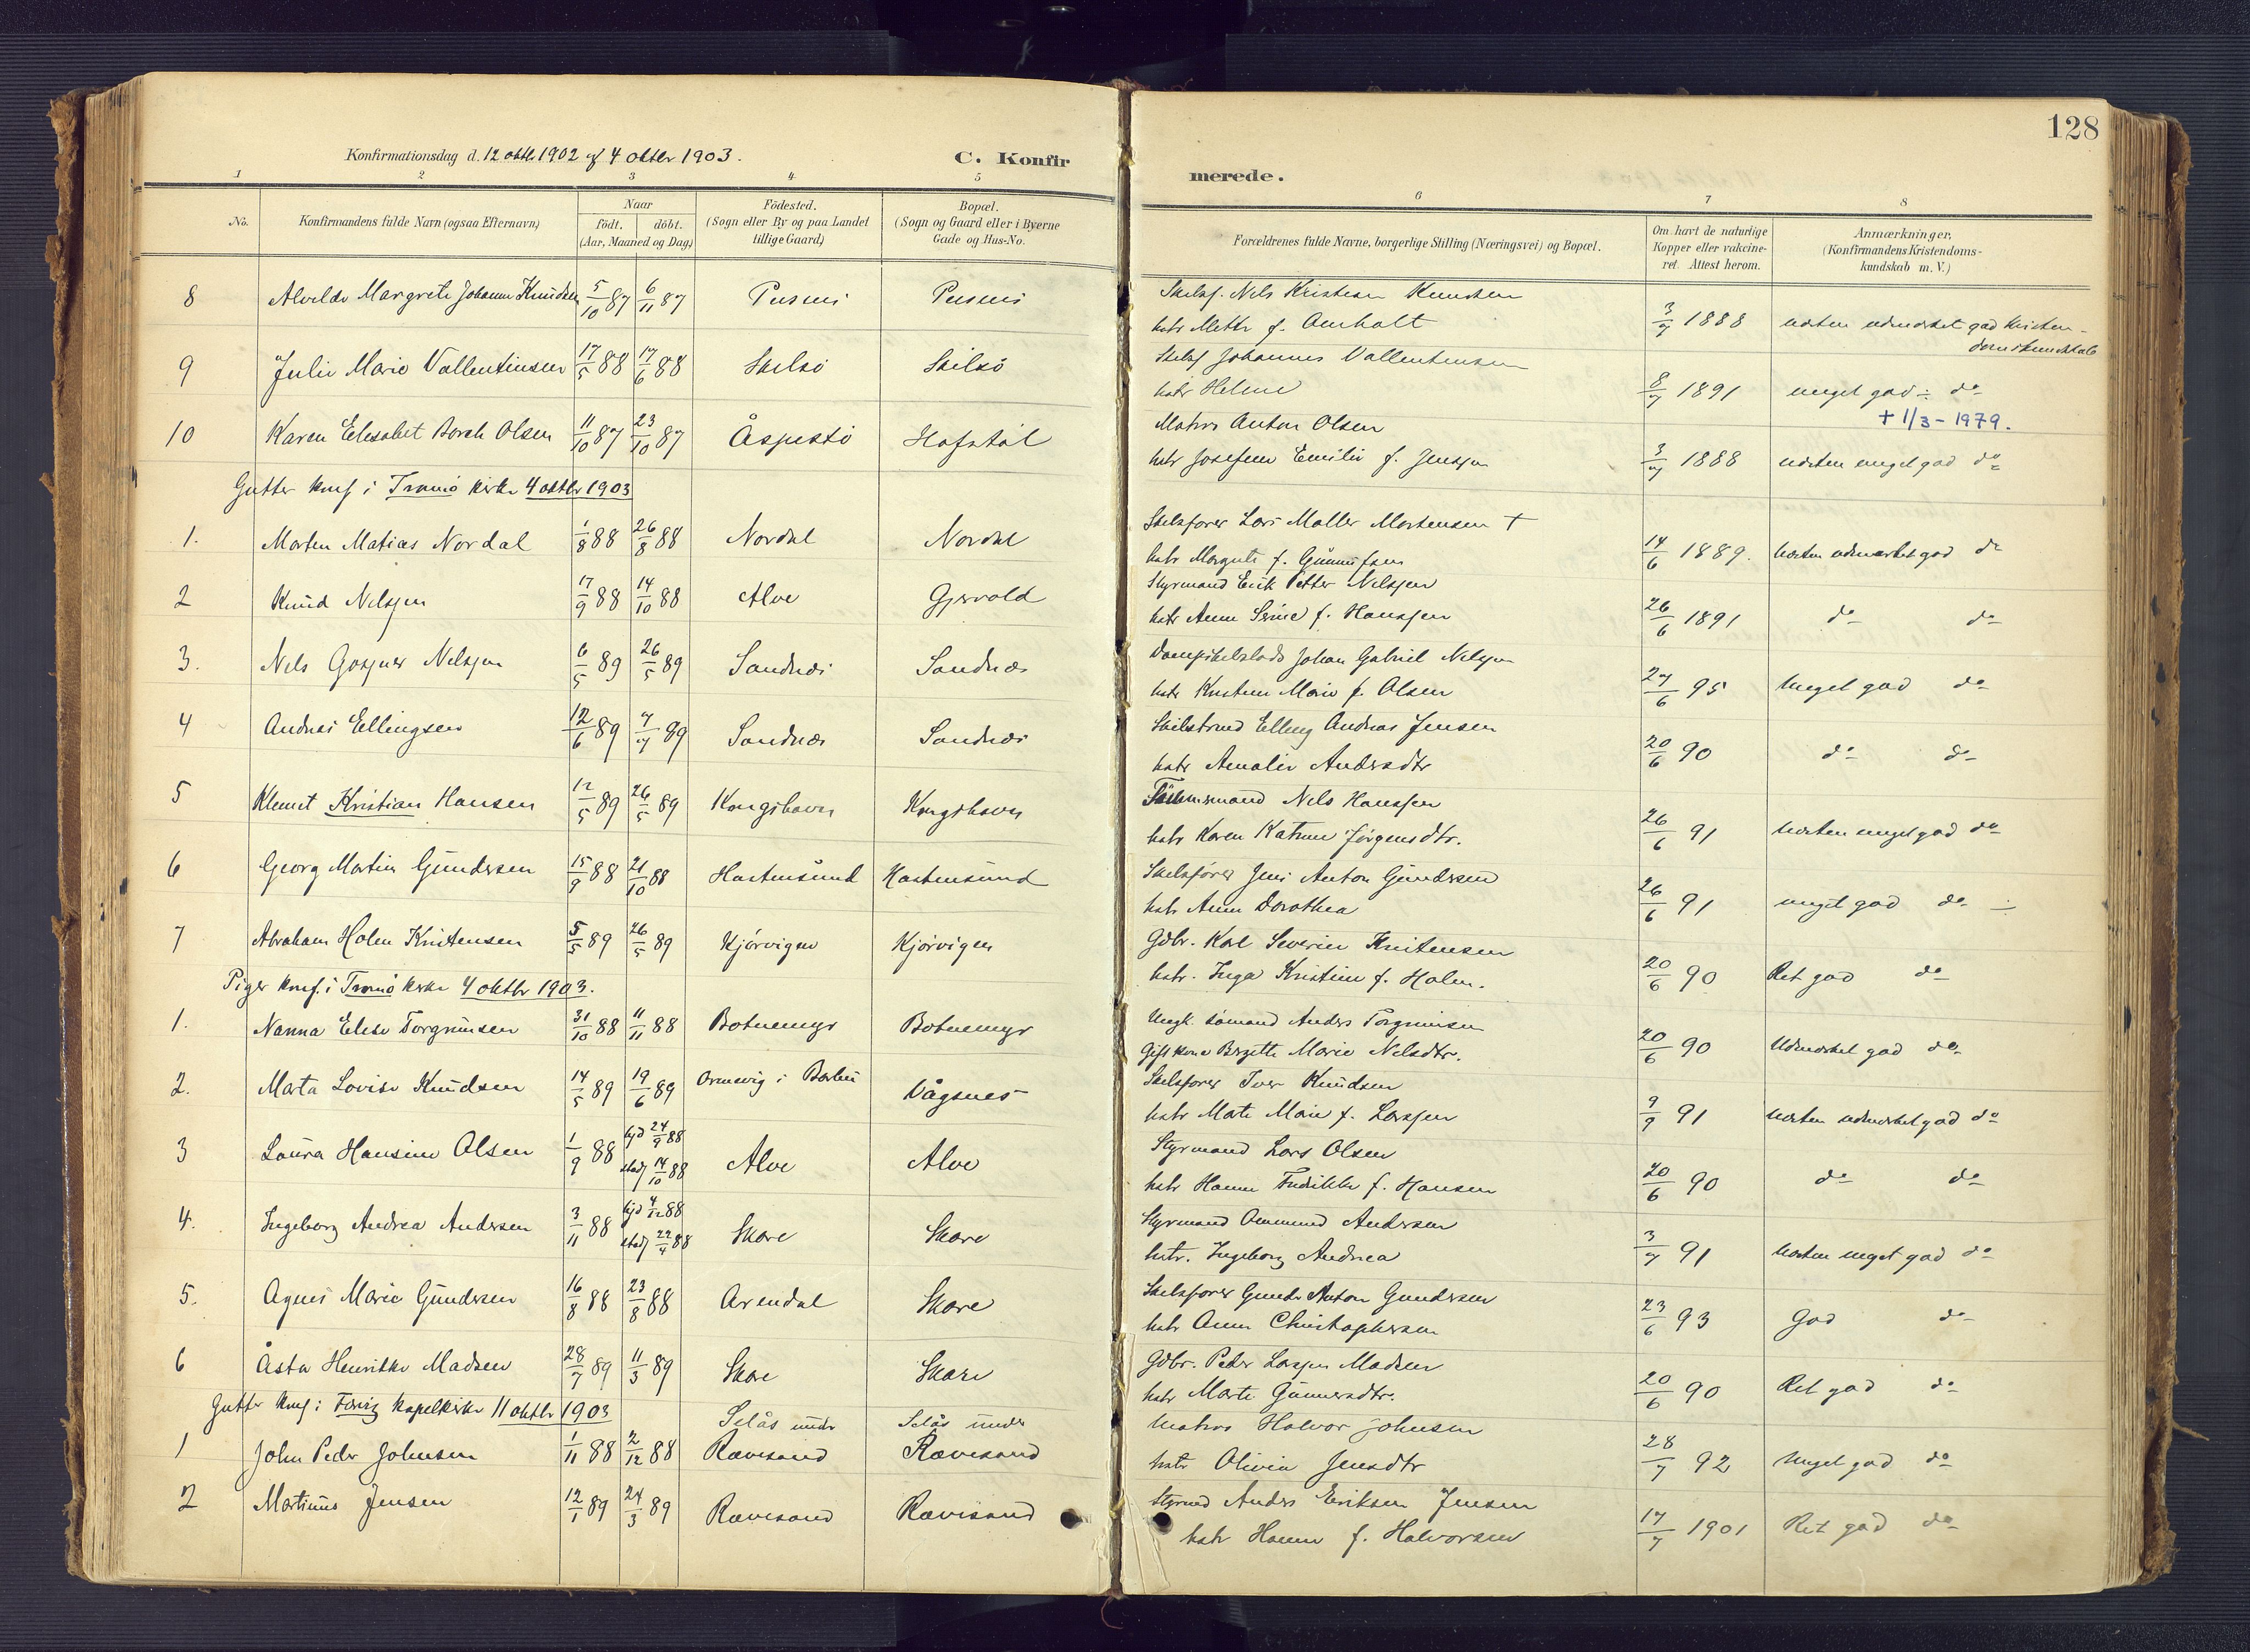 128
Konfirmationsdag d. 12 oktbr 1902 og 4 oktbr 1903.
C. Konfirmerede.
1 2 3 4 5 6 7 8
No.
Konfirmandens fulde Navn (ogsaa Efternavn)
Naar
født. døbt.
(Aar, Maaned og Dag)
Fødested.
(Sogn eller By og paa Landet
tillige Gaard)
Bopæl.
(Sogn og Gaard eller i Byerne
Gade og Hus-No.
Forældrenes fulde Navne, borgerlige Stilling (Næringsvei) og Bopæl.
Om havt de naturlige
Kopper eller vakcine-
ret. Attest herom.
Anmærkninger,
(Konfirmandens Kristendoms-
kundskab m. V.)
8 Alvilde Margrete Johanne Knudsen 5/10 87 6/11 87 Pusnes Pusnes Skibsf. Nils Kristian Knudsen
hstr Mette f. Amholt 3/7 1888 næsten udmærket god kristen-
domskundskab
9 Julie Marie Vallentinsen 17/5 88 17/6 88 Skilsö Skilsö Skibsf Johannes Vallentinsen
hstr Helene 8/7 1891 meget god do
+ 1/3 - 1979.
10 Karen Elisabet Olsen 11/10 87 23/10 87 Åspestö Hofstöl Matros Anton Olsen
hstr Josefine Emilie f. Jenssen 3/7 1888 næsten meget god do
Gutter konf i Tromö kirke 4 oktbr 1903
1. Morten Matias Nordal 1/8 88 26/8 88 Nordal Nordal Skibsfører Lars Møller Mortensen +
hstr Margrete f. 14/6 1889. næsten udmærket god do
2 Knud Nilssen 17/9 88 14/10 88 Alve Gjervold Styrmand Erik Petter Nilssen
hstr Anne Serine f. Hanssen 26/6 1891 do do
3. Nils Nilssen 6/5 89 26/5 89 Sandnæs Sandnæs Johan Gabriel Nilssen
hstr Kristine Marie f. Olsen 27/6 95 Meget god do
4 Andreas Ellingsen 12/6 89 7/7 89 Sandnæs Sandnæs Elling Andreas Jensen
hstr Amalie Andersdtr 20/6 90 do do
5 Klemet Kristian Hansen 12/5 89 26/5 89 Kongshavn Kongshavn Tømmermand Nils Hanssen
hstr Karen Katrine Jørgensdtr. 26/6 91 næsten meget god do
6 Georg Martin Gundersen 15/9 88 21/10 88 Hastensund Hastensund Skibsfører Jens Anton Gundersen
hstr Anne Dorothea 26/6 91 meget god do
7 Abraham Holm Kristensen 5/5 89 26/5 89 Kjörvigen Kjörvigen Gdbr. Karl Severin Kristensen
hstr. Inga Kristine f. Holm. 20/6 90 Ret god do
Piger konf. i Tromö kirke 4 oktbr 1903.
1. Nanna Elise Torgrimsen 31/10 88 11/11 88 Botnemyr Botnemyr Ungk. sömand Anders Torgrimsen
Gift kone Birgitte Marie Nilsdtr. 20/6 90 Udmærket god do
2. Marta Lovise Knudsen 14/5 89 19/6 89 Ormevig i Barbu Vågsnes Skibsfører Iver Knudsen
hstr Marte Marie f. Larssen 9/9 91 næsten udmærket god do
3 Laura Hansine Olsen 1/9 88 hjd 24/9 88
stadf 14/10 88 Alve Alve Styrmand Lars Olsen
hstr Hanne Fredrikke f. Hansen 20/6 90 do do
4. Ingeborg Andrea Andersen 3/11 88 hjd 4/12 88
stadf 22/4 88 Skare Skare Styrmand Ommund Andersen
hstr. Ingeborg Andrea 3/7 91 næsten meget god do
5. Agnes Marie Gundersen 16/8 88 23/8 88 Arendal Skare Skibsfører Gunder Anton Gundersen
hstr Anne Christophersen 23/6 93 God do
6 Åsta Henrikke Madsen 28/7 89 11/3 89 Skare Skare Gdbr. Peder Larssen Madsen
hstr Marte Gunnersdtr. 20/6 90 Ret god do
Gutter konf i Færvig kapelkirke 11 oktbr 1903
1 John Peder Johnsen 1/11 88 2/12 88 Selås under
Rævesand Selås under
Rævesand Matros Halvor Johnsen
hstr Olivia Jensdtr 28/7 92 Meget god do
2 Martinus Jensen 12/1 89 24/3 89 Rævesand Rævesand Styrmd Anders Eriksen Jensen
hstr Hanne f. Halvorsen 17/7 1901 Ret god do